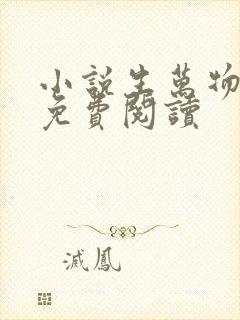 小説生萬物
免費閱讀
滅鳳